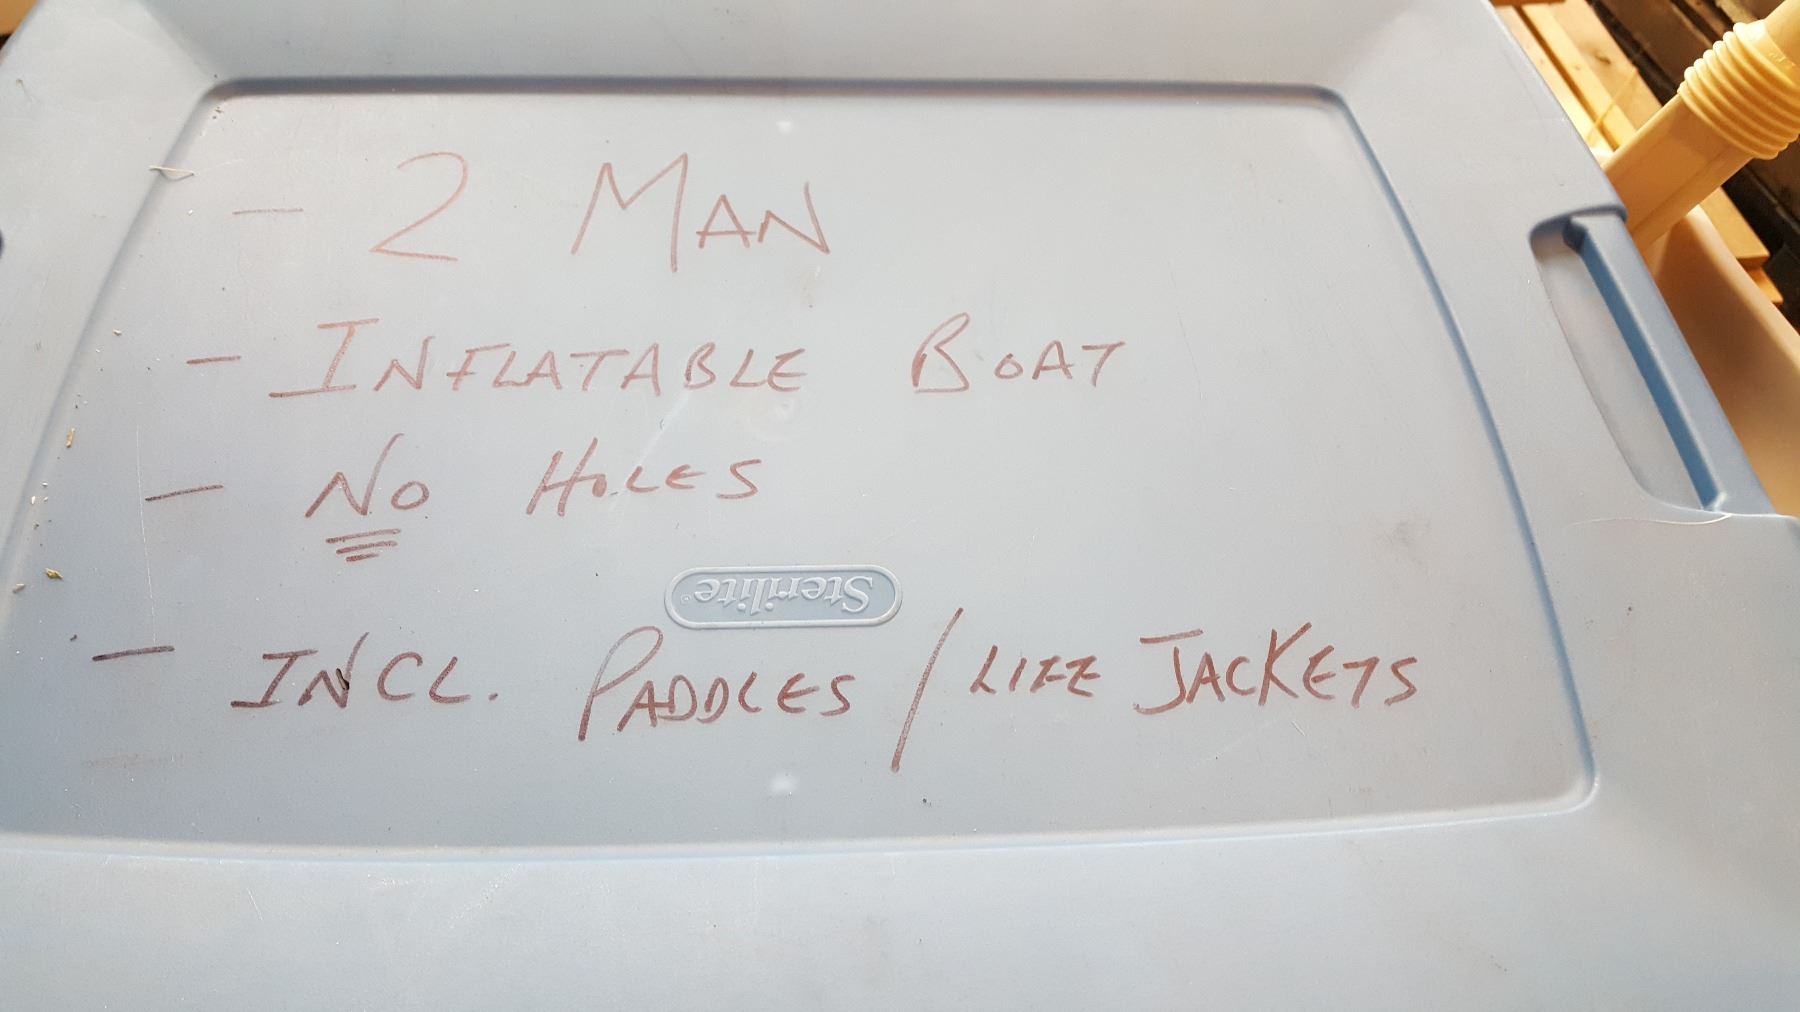 - 2 MAN
- INFLATABLE BOAT
- NO HOLES
Sterilite®
- INCL. PADDLES / LIFE JACKETS